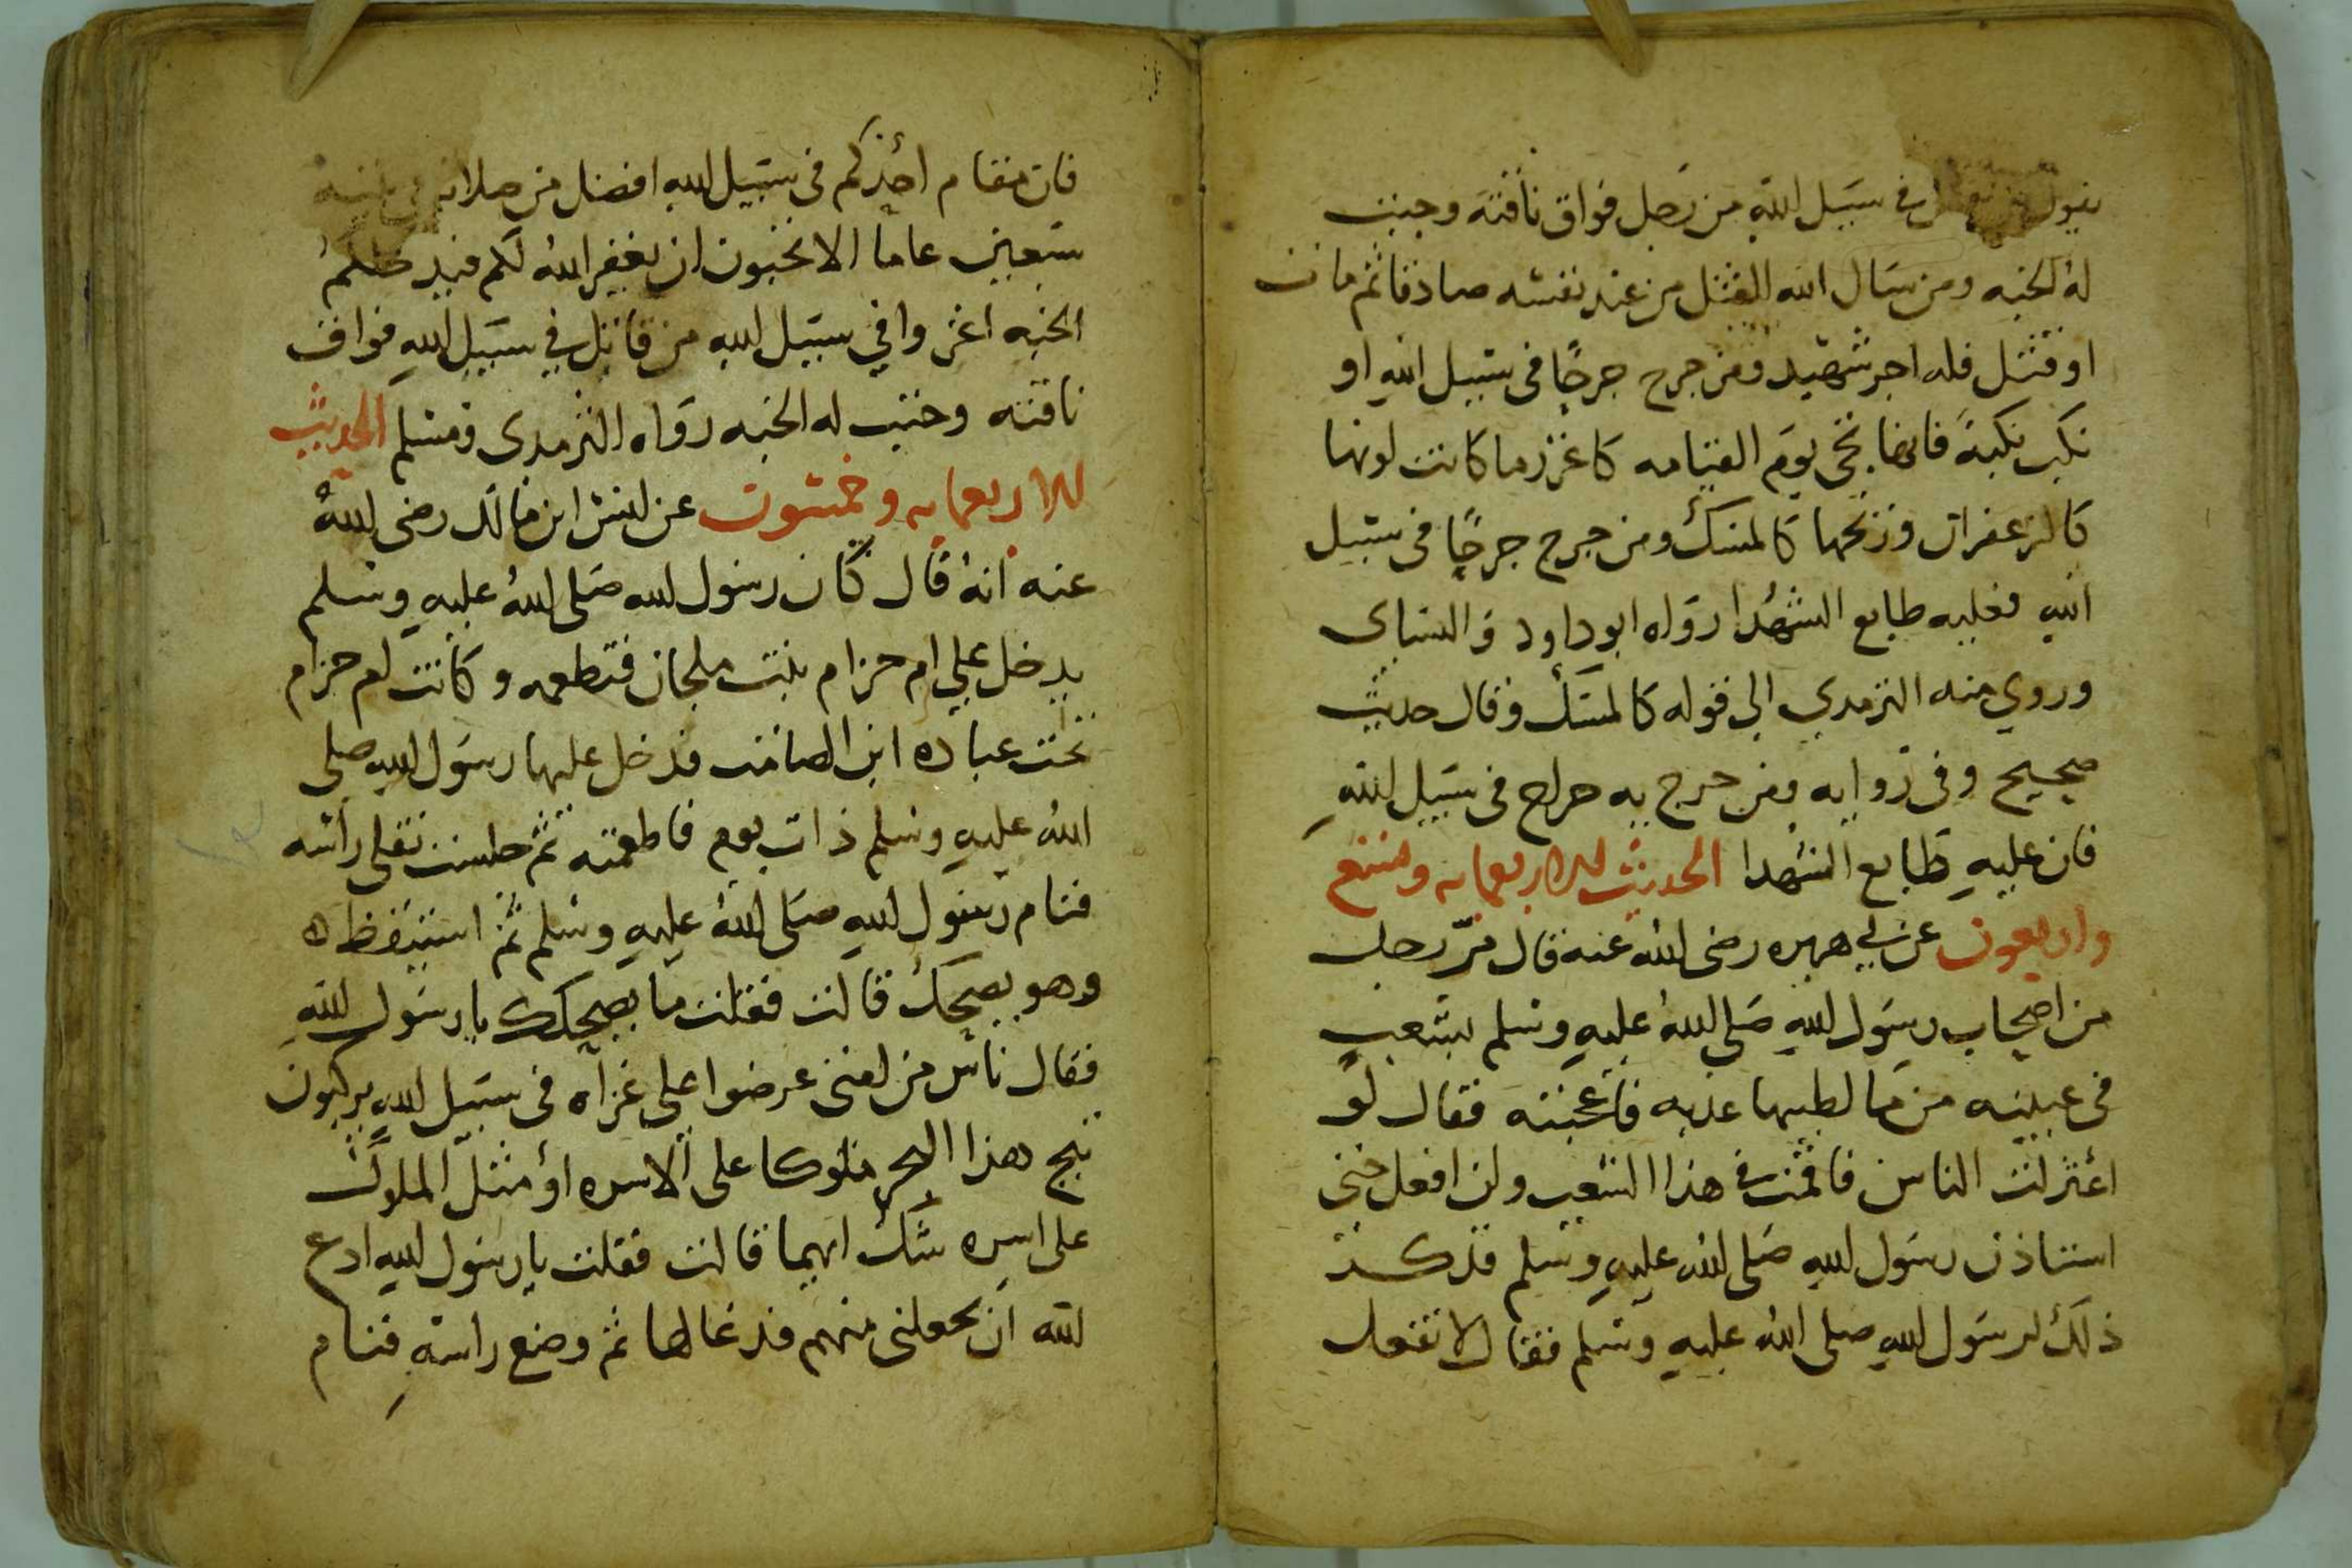 يقول من قاتل في سبيل الله من رجل فواق ناقته وجبت
له الجنه ومن سال الله القتل من عند نفسه صادقا ثم مات
او قتل فله اجر شهيد ومن جرح جرحًا في سبيل الله او
نكب نكبة فانها تجي يوم القيامه كاغزر ما كانت لونها
كالزعفران وريحها كالمسك ومن جرح جرحًا في سبيل
الله فعليه طابع الشهدا رواه ابو داود والنساى
وروي منه الترمدي الي قوله كالمسك وقال حديث
صحيح وفى روايه ومن جرح به جراح فى سبيل الله
فان عليه طابع الشهدا الحديث للاربعمايه وتسع
واربعون عن ابي هريره رضى الله عنه قال مرّ رجل
من اصحاب رسول الله صلى الله عليه وسلم بشعب
فى عيينه من ما لطيبها عدبه فاعجبته فقال لو
اعتزلت الناس فاقمت في هذا الشعب ولن افعل حتى
استاذن رسول الله صلى الله عليه وسلم فذكر
ذلك لرسول الله صلى الله عليه وسلم فقال لا تفعل
فان مقام احدكم فى سبيل الله افضل من صلاته في بيته
سبعين عاما الا تحبون ان يغفر الله لكم فيدخلكم
الجنه اغزوا في سبيل الله من قاتل في سبيل الله فواق
ناقته وجبت له الجنه رواه الترمدى ومسلم الحديث
للاربعمايه وخمسون عن انس ابن مالك رضى الله
عنه انه قال كان رسول الله صلى الله عليه وسلم
يدخل علي ام حزام بنت ملحان فتطعمه وكانت ام حزام
تحت عباده ابن الصامت فدخل عليها رسول الله صلى
الله عليه وسلم ذات يوم فاطعمته ثم جلست تفلى راسه
فنام رسول الله صلى الله عليه وسلم ثم استيقظ ه
وهو يضحك قالت فقلت ما يضحكك يا رسول الله
فقال ناس من امتى عرضوا على غزاه فى سبيل الله يركبون
ثبج هذا البحر ملوكا على الاسره او مثل الملوك
على اسره شك ايهما قالت فقلت يا رسول الله ادع
الله ان يجعلنى منهم فدعا لها ثم وضع راسه فنام